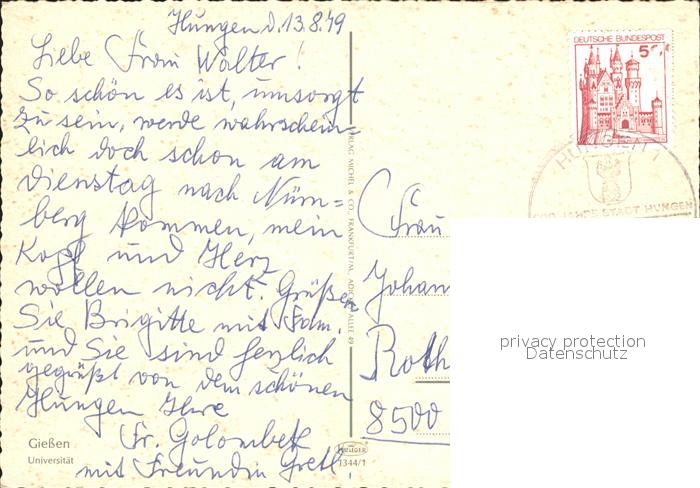 Hungen d. 13.8.79
Liebe Frau Walter!
So schön es ist, umsorgt
zu sein, werde wahrschein=
lich doch schon am
Dienstag nach Nürn=
berg kommen, mein
Kopf und Herz
wollen nicht. Grüßen
Sie Brigitte mit Fam.
und Sie sind herzlich
gegrüßt von dem schönen
Hungen Ihre
Fr. Golombek
mit Freundin Gretl.
Gießen
Universität
KRÜGER
1344/1
VERLAG MICHEL & CO., FRANKFURT/M., ADICKESALLEE 49
DEUTSCHE BUNDESPOST
50
HUNGEN 1
JAHRE STADT HUNGEN
Frau
Johan
Roth
8500
privacy protection
Datenschutz